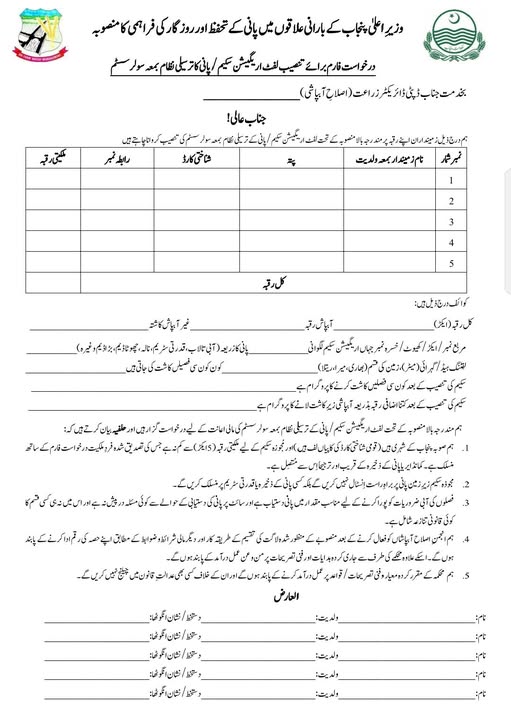 وزیراعلیٰ پنجاب کے بارانی علاقوں میں پانی کے تحفظ اور روزگار کی فراہمی کا منصوبہ
درخواست فارم برائے تنصیب لفٹ اریگیشن سکیم / پانی کا ترسیلی نظام بمعہ سولر سسٹم
بخدمت جناب ڈپٹی ڈائریکٹر زراعت (اصلاح آبپاشی)
جناب عالی!
ہم درج ذیل زمینداران اپنے رقبہ پر مندرجہ بالا منصوبہ کے تحت لفٹ اریگیشن سکیم / پانی کے ترسیلی نظام بمعہ سولر سسٹم کی تنصیب کروانا چاہتے ہیں
نمبر شمار نام زمیندار بمعہ ولدیت پتہ شناختی کارڈ رابطہ نمبر ملکیتی رقبہ
1
2
3
4
5
کل رقبہ
کوائف درج ذیل ہیں:
کل رقبہ (ایکڑ) آبپاش رقبہ غیر آبپاش کاشتہ
مربع نمبر / ایکڑ / کھیوٹ / خسرہ نمبر جہاں اریگیشن سکیم لگوانی پانی کا زریعہ (آبی تالاب، قدرتی سٹریم، نالہ، چھوٹا ڈیم، بڑا ڈیم وغیرہ)
لفٹنگ ہیڈ / گہرائی (میٹر) زمین کی قسم (بھاری، میرا، ریتلا) کون کون سی فصیلیں کاشت کی جاتی ہیں
سکیم کی تنصیب کے بعد کون سی فصلیں کاشت کرنے کا پروگرام ہے
سکیم کی تنصیب کے بعد کتنا اضافی رقبہ بذریعہ آبپاشی زیر کاشت لانے کا پروگرام ہے
ہم مندرجہ بالا منصوبہ کے تحت لفٹ اریگیشن سکیم / پانی کے ترسیلی نظام بمعہ سولر سسٹم کی مالی اعانت کے لیے درخواست گزار ہیں اور حلفیہ بیان کرتے ہیں کہ:
1. ہم صوبہ پنجاب کے شہری ہیں (قومی شناختی کارڈ کی کاپیاں لف ہیں) اور مجوزہ سکیم کے لیے ملکیتی رقبہ (5 ایکڑ) سے کم نہ ہے جس کی تصدیق شدہ فرد ملکیت درخواست فارم کے ساتھ
منسلک ہے۔ کمانڈ ایریا پانی کے ذخیرہ کے قریب اور ترجیحاً اس سے متصل ہے۔
2. مجوزہ سکیم زیر زمین پانی پر براہ راست انسٹال نہیں کریں گے بلکہ کسی پانی کے ذخیرہ یا قدرتی سٹریم پر منسلک کریں گے۔
3. فصلوں کی آبی ضروریات کو پورا کرنے کے لیے مناسب مقدار میں پانی دستیاب ہے اور سائٹ پر پانی کی دستیابی کے حوالے سے کوئی مسئلہ درپیش نہ ہے اور اس میں نہ ہی کسی قسم کا
کوئی قانونی تنازعہ شامل ہے۔
4. ہم انجمن اصلاح آبپاشاں کو فعال کرنے کے بعد منصوبے کے منظور شدہ لاگت کی تقسیم کے طریقہ کار اور دیگر مالی شرائط و ضوابط کے مطابق اپنے حصہ کی رقم ادا کرنے کے پابند
ہوں گے۔ اسکے علاوہ محکمے کی طرف سے جاری کردہ ہدایات اور فنی تصریحات پر من و عن عمل درآمد کے پابند ہوں گے۔
5. ہم محکمہ کے مقرر کردہ معیار و فنی تصریحات / قواعد پر عمل درآمد کرنے کے پابند ہوں گے اور ان کے خلاف کسی بھی عدالت قانون میں چیلنج نہیں کریں گے۔
العارض
نام: ولدیت: دستخط / نشان انگوٹھا:
نام: ولدیت: دستخط / نشان انگوٹھا:
نام: ولدیت: دستخط / نشان انگوٹھا:
نام: ولدیت: دستخط / نشان انگوٹھا:
نام: ولدیت: دستخط / نشان انگوٹھا: